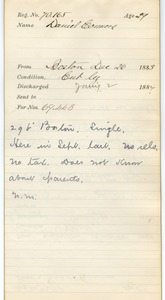 Reg. No. 70165 Age 29
Name Daniel Connor
From Boston Dec 20 1883
Condition,
Discharged Jany 2 1884
Sent to
For Nos. 69443
29 b' Boston. Single,
Here in Sept. last. No rels.
no tax. Does not know
about parents.